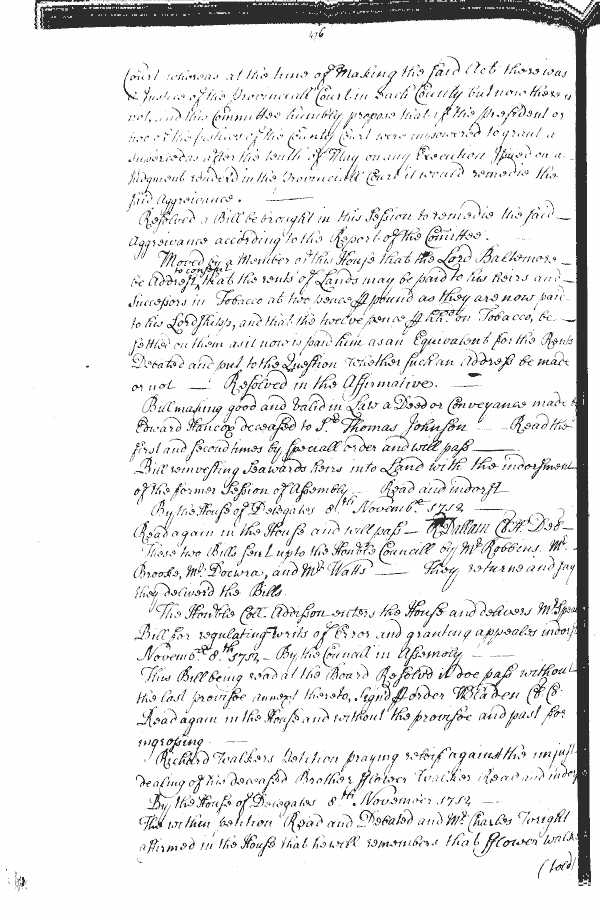 476
Court whereas at the time of Making the said Act there was
a Justice of the Provinciall Court in each County but now there is
not, and this Committee humbly propose that if the President or
two of the Justices of the County Court were impowered to grant a
Supersedeas after the tenth of May on any Execution Issued on a
Judgment renderd in the Provinciall Court it would remedie the
said Aggreivance.
Resolved a Bill be brought in this Session to remedie the said
Aggreivance according to the Report of the Comittee.
Moved by a Member of this House that the Lord Baltemore
be Addrest, to consent that the rents of Lands may be paid to his heirs and
Successors in Tobacco at two pence ⅌ pound as they are now paid
to his Lordshipp, and that the twelve pence ⅌ hhd. on Tobacco, be
settled on them as it now is paid him as an Equivalent for the Rents
Debated and put to the Question whether such an Address be made
or not — Resolved in the Affirmative.
Bill making good and Valid in Law a Deed or Conveyance made
Edward Hancox deceased to Sr. Thomas Johnson — Read the
first and second times by speciall order and will pass
Bill reinvesting Seawards heirs into Land with the indorsment
of the former Session of Assembly — Read and indorst
By the House of Delegates 8th. Novembr. 1712
Read again in the House and will pass — R Dallam Cl. Hs. Del.
These two Bills sent up to the Honble Councill by Mr. Robbins. Mr.
Brooke, Mr. Docwra, and Mr. Watts — They returne and say
they deliverd the Bills.
The Honble Coll. Addison enters the House and delivers Mr. Spea
Bill for regulating writs of Error and granting appeales indors
Novembr. 8th. 1712 — By the Council in Assembly
This Bill being read at the Board Resolvd it doe pass without
the last provisoe annext thereto, Signd ⅌ order WBladen Cl. C.
Read again in the House and without the provisoe and past for
ingrossing
Richard Walkers Petition praying releif against the unjust
dealing of his deceased Brother Fflower Walker Read and indors
By the House of Delegates 8th. November 1712
The within petition Read and Debated and Mr. Charles Wright
affirmed in the House that he well remembers that Fflower Walker
(told